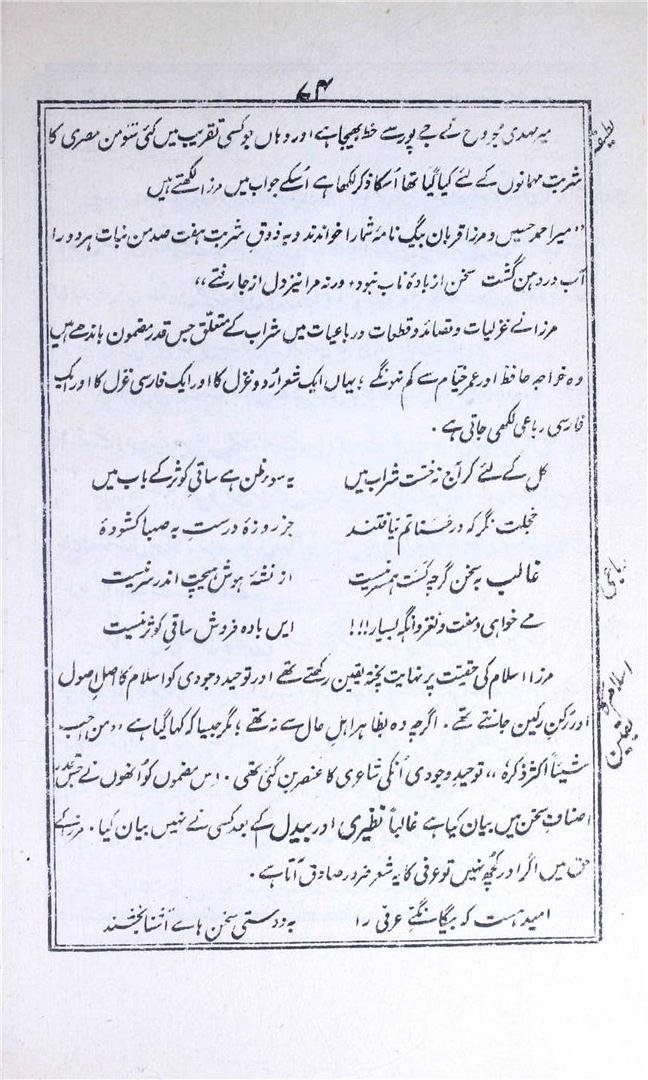 ۷۴
لطیفہ
میر مہدی مجروح نے جے پور سے خط بھیجا ہے اور وہاں جو کسی تقریب میں کئی سَو من مصری کا
شربت مہمانوں کے لئے کیا گیا تھا اُسکا ذکر لکھا ہے اسکے جواب میں مرزا لکھتے ہیں
”میر احمد حسین و مرزا قربان بیگ نامۂ شمارا خواندند و بہ ذوق شربت ہفت صد من نبات ہر دو را
آب در دہن گشت سخن از بادۂ ناب نبود، ورنہ مرا نیز دل از جا رفتے“
مرزا نے غزلیات و قصائد و قطعات و رباعیات میں شراب کے متعلق جس قدر مضمون باندھے ہیں
وہ خواجہ حافظ اور عمر خیام سے کم نہونگے؛ یہاں ایک شعر اُردو غزل کا اور ایک فارسی غزل کا اور ایک
فارسی رباعی لکھی جاتی ہے۔
کل کے لئے کر آج نہ خست شراب میں یہ سوء ظن ہے ساقیِ کوثر کے باب میں
خجلت نگر کہ در حسناتم نیافتند جز روزۂ درست بہ صہبا کشودۂ
رباعی
غالب بہ سخن گرچہ کست ہمسر نیست از نشۂ ہوش ہیچت اندر سر نیست
مے خواہی و مفت و نغز وانگہ بسیار!!! ایں بادہ فروش ساقیِ کوثر نیست
اسلام کا یقین
مرزا اسلام کی حقیقت پر نہایت پختہ یقین رکھتے تھے اور توحید وجودی کو اسلام کا اصل اصول
اور رکنِ رکین جانتے تھے۔ اگرچہ وہ بظاہر اہلِ حال سے نہ تھے؛ مگر جیسا کہ کہا گیا ہے ”من احب
شیئاً اکثر ذکرہٗ“ توحیدِ وجودی اُنکی شاعری کا عنصر بن گئی تھی۔ اس مضموں کو اُنھوں نے جس قدر
اصنافِ سخن میں بیان کیا ہے غالباً نظیری اور بیدل کے بعد کسی نے نہیں بیان کیا۔ مرزا کے
حق میں اگر اور کچھ نہیں تو عرفی کا یہ شعر ضرور صادق آتا ہے۔
امید ہست کہ بیگانگیِ عرفی را بہ دوستی سخن ہاے آشنا بخشند